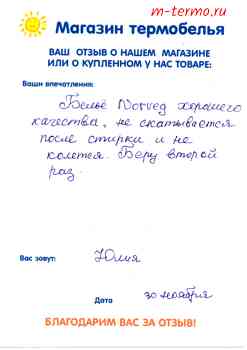 m-termo.ru
Магазин термобелья
ВАШ ОТЗЫВ О НАШЕМ МАГАЗИНЕ
ИЛИ О КУПЛЕННОМ У НАС ТОВАРЕ:
Ваши впечатления:
Бельё Norveg хорошего
качества, не скатывается
после стирки и не
колется. Беру второй
раз.
Вас зовут: Юлия
Дата 30 ноября
БЛАГОДАРИМ ВАС ЗА ОТЗЫВ!